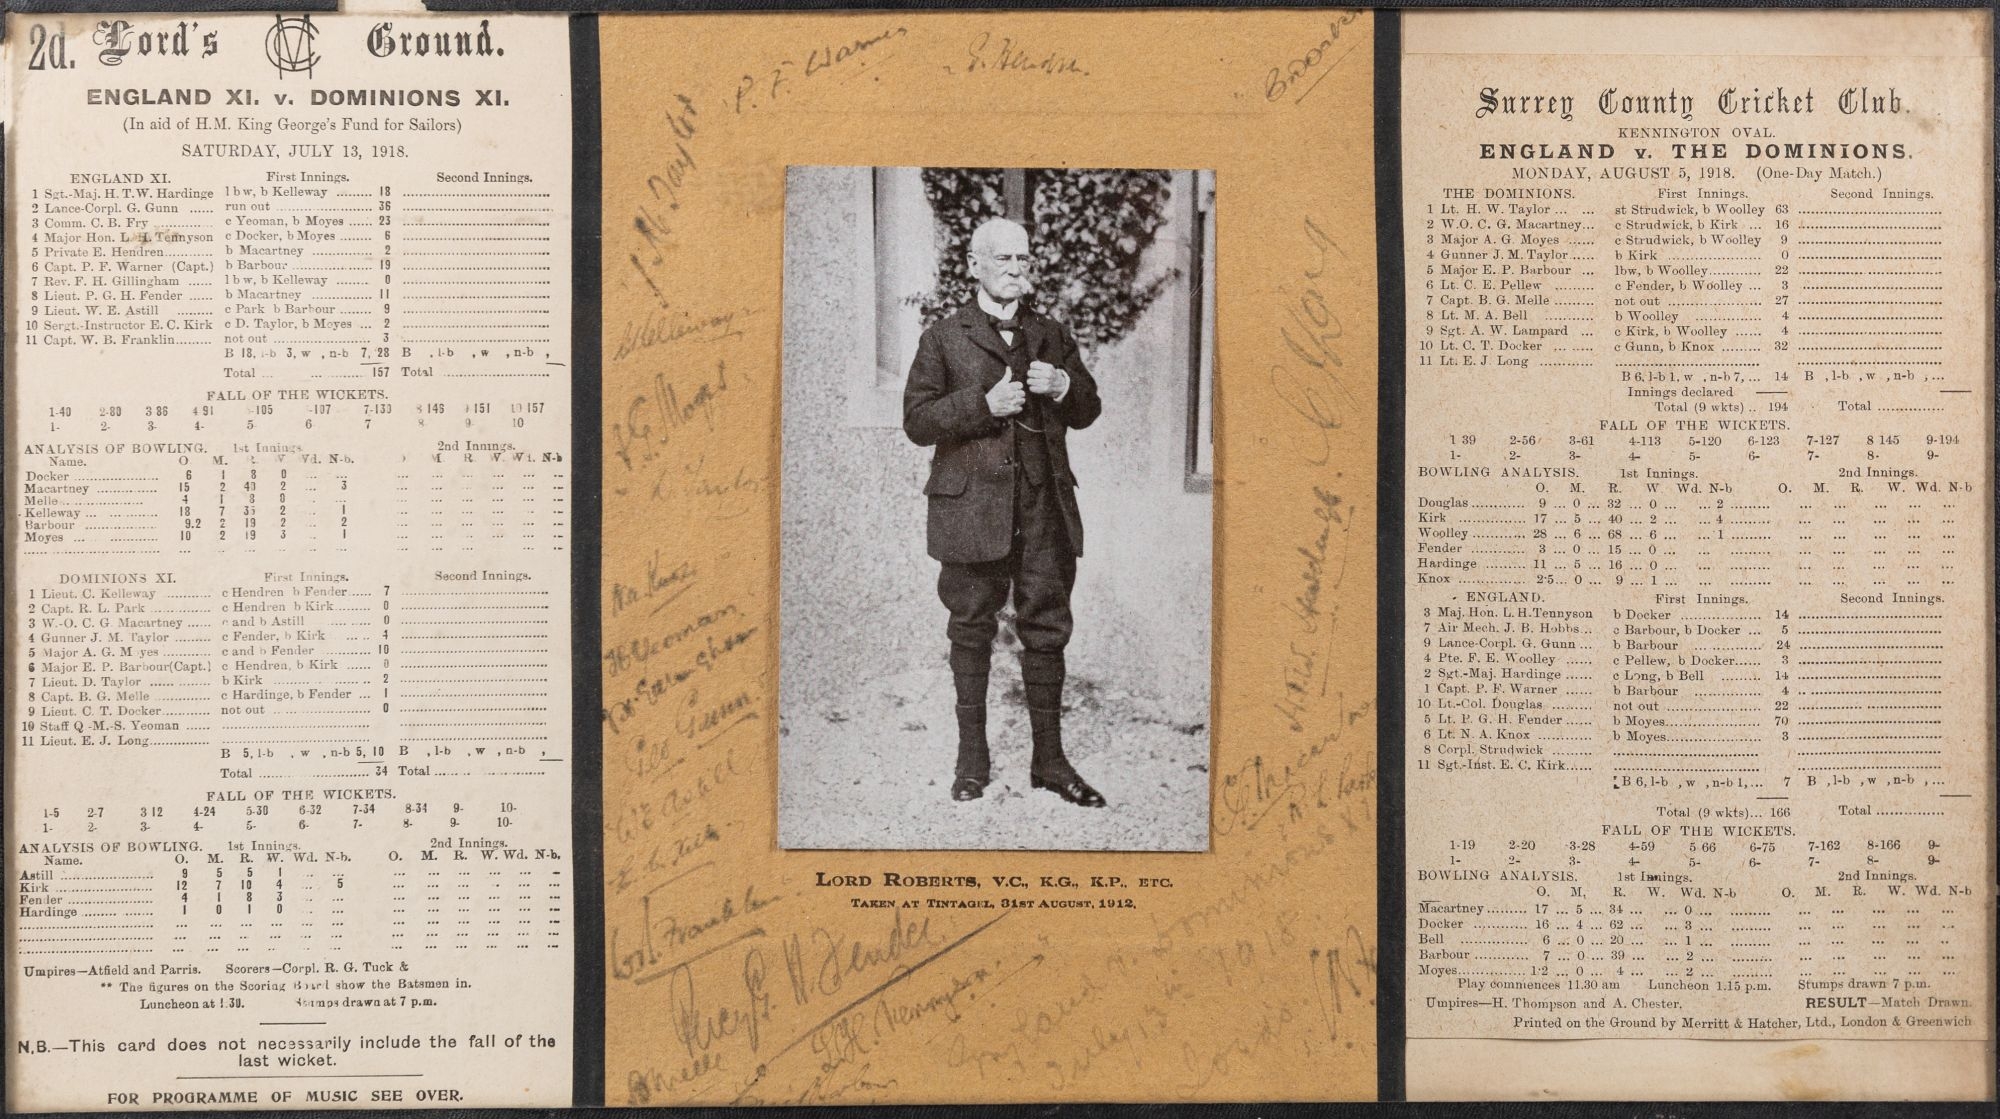 2d. Lord's MCC Ground.
ENGLAND XI. v. DOMINIONS XI.
(In aid of H.M. King George's Fund for Sailors)
SATURDAY, JULY 13, 1918.
ENGLAND XI. First Innings. Second Innings.
1 Sgt.-Maj. H. T.W. Hardinge l b w, b Kelleway ........ 18
2 Lance-Corpl. G. Gunn ...... run out ........ 36
3 Comm. C. B. Fry ........ c Yeoman, b Moyes ...... 23
4 Major Hon. L. H. Tennyson c Docker, b Moyes ........ 6
5 Private E. Hendren............ b Macartney ........ 2
6 Capt. P. F. Warner (Capt.) b Barbour ........ 19
7 Rev. F. H. Gillingham ...... l b w, b Kelleway ........ 0
8 Lieut. P. G. H. Fender ...... b Macartney ........ 11
9 Lieut. W. E. Astill ......... c Park b Barbour ........ 9
10 Sergt.-Instructor E. C. Kirk c D. Taylor, b Moyes ... 2
11 Capt. W. B. Franklin......... not out ........ 3
B 18, l-b 3, w , n-b 7, 28 B , l-b , w , n-b ,
Total ... ........ 157 Total ........
FALL OF THE WICKETS.
1-40 2-80 3 86 4 91 -105 -107 7-130 8 146 9 151 10 157
1- 2- 3- 4- 5- 6- 7 8- 9- 10
ANALYSIS OF BOWLING. 1st Innings. 2nd Innings.
Name. O M. R. W Wd. N-b. M R. W. Wd. N-b
Docker ........ 6 1 8 0
Macartney ........ 15 2 40 2 3
Melle ........ 4 1 8 0
Kelleway ........ 18 7 35 2 1
Barbour ........ 9.2 2 19 2 2
Moyes ........ 10 2 19 3 1
DOMINIONS XI. First Innings. Second Innings.
1 Lieut. C. Kelleway ...... c Hendren b Fender...... 7
2 Capt. R. L. Park ........ c Hendren b Kirk ........ 0
3 W.-O. C. G. Macartney ...... c and b Astill ...... 0
4 Gunner J. M. Taylor ........ c Fender, b Kirk ..... 4
5 Major A. G. M yes ........ c and b Fender ........ 10
6 Major E. P. Barbour(Capt.) c Hendren, b Kirk ...... 0
7 Lieut. D. Taylor ........ b Kirk ........ 2
8 Capt. B. G. Melle ........ c Hardinge, b Fender ... 1
9 Lieut. C. T. Docker......... not out ........ 0
10 Staff Q -M.-S. Yeoman ......
11 Lieut. E. J. Long............
B 5, l-b , w , n-b 5, 10 B , l-b , w , n-b ,
Total ........ 34 Total ........
FALL OF THE WICKETS.
1-5 2-7 3 12 4-24 5-30 6-32 7-34 8-34 9- 10-
1- 2- 3- 4- 5- 6- 7- 8- 9- 10-
ANALYSIS OF BOWLING. 1st Innings. 2nd Innings.
Name. O. M. R. W. Wd. N-b. O. M. R. W. Wd. N-b.
Astill ........ 9 5 5 1
Kirk ........ 12 7 10 4 5
Fender ........ 4 1 8 3
Hardinge ........ 1 0 1 0
Umpires—Atfield and Parris. Scorers—Corpl. R. G. Tuck &
** The figures on the Scoring Board show the Batsmen in.
Luncheon at 1.30. Stumps drawn at 7 p.m.
N.B.—This card does not necessarily include the fall of the
last wicket.
FOR PROGRAMME OF MUSIC SEE OVER.
P. F. Warner
E. Hendren
J. M. Taylor
C Kelleway
A G. Moyes
C B Fry
N. A. Knox
H Yeoman
Geo Gunn
W E Astill
H. Strudwick
C G Macartney
R. L. Park
LORD ROBERTS, V.C., K.G., K.P., ETC.
TAKEN AT TINTAGEL, 31ST AUGUST, 1912.
W. Franklin
Percy G. H. Fender
L. H. Tennyson
B Melle
Dominions XI
July 13th 1918.
Lords
Surrey County Cricket Club.
KENNINGTON OVAL.
ENGLAND v. THE DOMINIONS.
MONDAY, AUGUST 5, 1918. (One-Day Match.)
THE DOMINIONS. First Innings. Second Innings.
1 Lt. H. W. Taylor ... ... st Strudwick, b Woolley 63
2 W.O. C. G. Macartney... c Strudwick, b Kirk ... 16
3 Major A. G. Moyes ...... c Strudwick, b Woolley 9
4 Gunner J. M. Taylor...... b Kirk 0
5 Major E. P. Barbour ... lbw, b Woolley......... 22
6 Lt. C. E. Pellew ......... c Fender, b Woolley ... 3
7 Capt. B. G. Melle ......... not out ......... 27
8 Lt. M. A. Bell ......... b Woolley ......... 4
9 Sgt. A. W. Lampard ... c Kirk, b Woolley ...... 4
10 Lt. C. T. Docker ... ...... c Gunn, b Knox ......... 32
11 Lt. E. J. Long .........
B 6, l-b 1, w , n-b 7, ... 14 B , l-b , w , n-b , ...
Innings declared
Total (9 wkts) .. 194 Total ..............
FALL OF THE WICKETS.
1 39 2-56 3-61 4-113 5-120 6-123 7-127 8 145 9-194
1- 2- 3- 4- 5- 6- 7- 8- 9-
BOWLING ANALYSIS. 1st Innings. 2nd Innings.
O. M. R. W Wd. N-b O. M. R. W. Wd. N-b
Douglas............ 9 ... 0 ... 32 ... 0 ... ... 2
Kirk ............ 17 ... 5 ... 40 ... 2 ... ... 4
Woolley ............ 28 ... 6 ... 68 ... 6 ... ... 1
Fender ............ 3 ... 0 ... 15 ... 0 ...
Hardinge ......... 11 ... 5 ... 16 ... 0 ...
Knox ............ 2·5... 0 ... 9 ... 1 ...
ENGLAND. First Innings. Second Innings.
3 Maj. Hon. L. H. Tennyson b Docker ......... 14
7 Air Mech. J. B. Hobbs... c Barbour, b Docker ... 5
9 Lance-Corpl. G. Gunn ... b Barbour ......... 24
4 Pte. F. E. Woolley ...... c Pellew, b Docker...... 3
2 Sgt.-Maj. Hardinge ...... c Long, b Bell ......... 14
1 Capt. P. F. Warner ...... b Barbour ......... 4
10 Lt.-Col. Douglas ......... not out ......... 22
5 Lt. P. G. H. Fender ...... b Moyes............ 70
6 Lt. N. A. Knox ......... b Moyes............ 3
8 Corpl. Strudwick .........
11 Sgt.-Inst. E. C. Kirk......
B 6, l-b , w , n-b 1, ... 7 B , l-b , w , n-b , ...
Total (9 wkts)... 166 Total ..............
FALL OF THE WICKETS.
1-19 2-20 3-28 4-59 5 66 6-75 7-162 8-166 9-
1- 2- 3- 4- 5- 6- 7- 8- 9-
BOWLING ANALYSIS. 1st Innings. 2nd Innings.
O. M, R. W. Wd. N-b O. M. R. W. Wd. N-b
Macartney......... 17 ... 5 ... 34 ... ... 0 ...
Docker ............ 16 ... 4 ... 62 ... ... 3 ...
Bell ............ 6 ... 0 ... 20 ... ... 1 ...
Barbour ............ 7 ... 0 ... 39 ... ... 2 ...
Moyes............ 1·2 ... 0 ... 4 ... ... 2 ...
Play commences 11.30 am Luncheon 1.15 p.m. Stumps drawn 7 p.m.
Umpires—H. Thompson and A. Chester. RESULT—Match Drawn.
Printed on the Ground by Merritt & Hatcher, Ltd., London & Greenwich